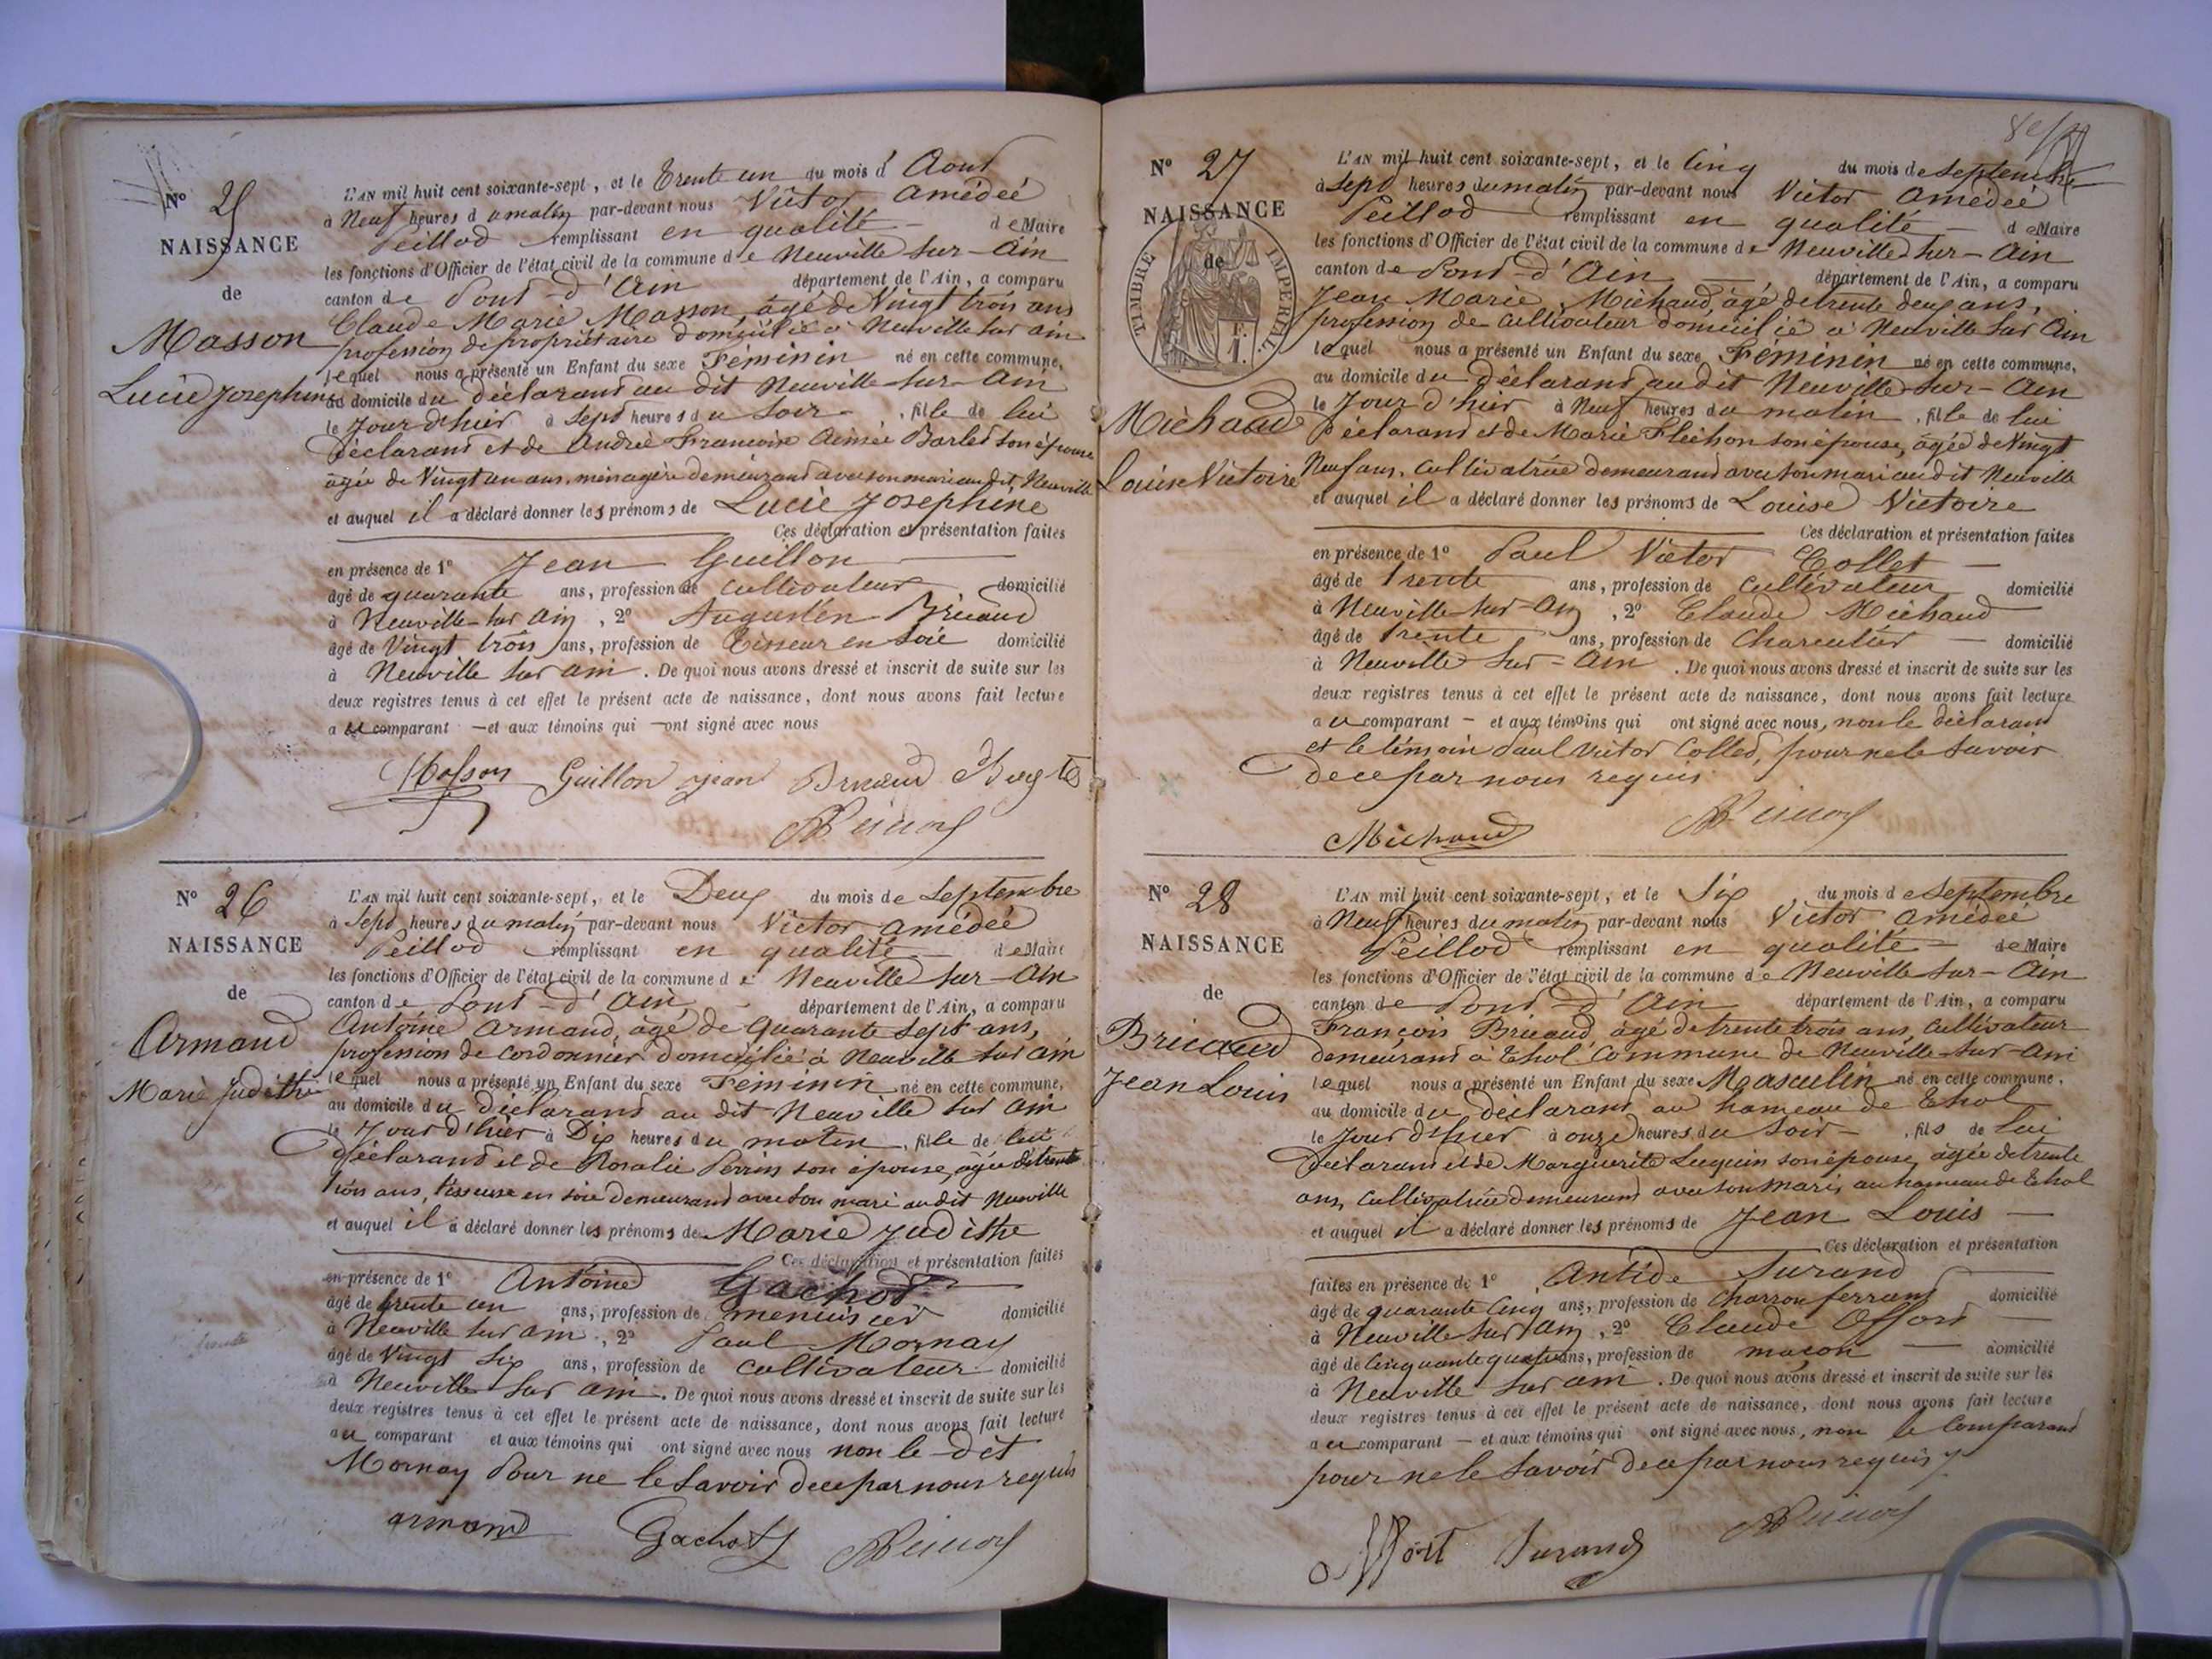 N° 25
NAISSANCE
de
Masson
Lucie Josephine
L'AN mil huit cent soixante-sept, et le Trente un du mois d' Aout
à Neuf heures d u matin par-devant nous Victor Amédeé
Peillod remplissant en qualité d e Maire
les fonctions d'Officier de l'état civil de la commune d e Neuville sur-Ain
canton de Pont-d'Ain département de l'Ain, a comparu
Claude Marie Masson, âgé de Vingt trois ans
profession de propriétaire domicilié à Neuville sur ain
lequel nous a présenté un Enfant du sexe Féminin né en cette commune,
au domicile du déclarant au dit Neuville-sur-Ain
le Jour d'hier à Sept heures du Soir, fille de lui
déclarant et de Andrée Francoise Aimée Barlet son épouse
agée de Vingt un ans, ménagère demeurant avec son mari au dit Neuville
et auquel il a déclaré donner les prénoms de Lucie Josephine
Ces déclaration et présentation faites
en présence de 1° Jean Guillon
âgé de quarante ans, profession de cultivateur domicilié
à Neuville-sur Ain, 2° Augustin Bricaud
âgé de Vingt trois ans, profession de Tisseur en Soie domicilié
à Neuville sur ain. De quoi nous avons dressé et inscrit de suite sur les
deux registres tenus à cet effet le présent acte de naissance, dont nous avons fait lecture
au comparant — et aux témoins qui — ont signé avec nous
Masson Guillon jean
N° 26
NAISSANCE
de
Armand
Marie Judithe
L'AN mil huit cent soixante-sept, et le Deux du mois de Septembre
à Sept heures du matin par-devant nous Victor Amédeé
Peillod remplissant en qualité d e Maire
les fonctions d'Officier de l'état civil de la commune d e Neuville sur-Ain
canton de Pont-d'Ain département de l'Ain, a comparu
Antoine Armand, âgé de Quarante Sept ans,
profession de Cordonnier domicilié à Neuville sur ain
lequel nous a présenté un Enfant du sexe Féminin né en cette commune,
au domicile du déclarant au dit Neuville sur Ain
le Jour d'hier à Dix heures du matin, fille de lui
déclarant et de Rosalie Perrin son épouse, agée de trente
trois ans, tisseuse en soie demeurant avec son mari au dit Neuville
et auquel il a déclaré donner les prénoms de Marie Judithe
Ces déclaration et présentation faites
en présence de 1° Antoine Gachot
âgé de trente un ans, profession de menuisier domicilié
à Neuville sur ain, 2° Paul Mornay
âgé de Vingt Six ans, profession de cultivateur domicilié
à Neuville sur ain. De quoi nous avons dressé et inscrit de suite sur les
deux registres tenus à cet effet le présent acte de naissance, dont nous avons fait lecture
au comparant et aux témoins qui ont signé avec nous non le dit
Mornay Pour ne le Savoir de ce par nous requis
armand Gachot
N° 27
NAISSANCE
de
TIMBRE IMPERIAL
Michaud
Louise Victoire
L'AN mil huit cent soixante-sept, et le Cinq du mois de Septembre
à Sept heures du matin par-devant nous Victor Amédeé
Peillod remplissant en qualité d e Maire
les fonctions d'Officier de l'état civil de la commune de Neuville sur-Ain
canton de Pont-d'Ain département de l'Ain, a comparu
Jean Marie Michaud, âgé de trente deux ans,
profession de Cultivateur domicilié à Neuville sur Ain
lequel nous a présenté un Enfant du sexe Féminin né en cette commune,
au domicile du déclarant au dit Neuville-sur-Ain
le Jour d'hier à Neuf heures du matin, fille de lui
déclarant et de Marie Fléchon son épouse, âgée de Vingt
Neuf ans, cultivatrice demeurant avec son mari au dit Neuville
et auquel il a déclaré donner les prénoms de Louise Victoire
Ces déclaration et présentation faites
en présence de 1° Paul Victor Collet
âgé de trente ans, profession de cultivateur domicilié
à Neuville-sur-Ain, 2° Claude Michaud
âgé de trente ans, profession de Charcutier domicilié
à Neuville sur-Ain. De quoi nous avons dressé et inscrit de suite sur les
deux registres tenus à cet effet le présent acte de naissance, dont nous avons fait lecture
au comparant — et aux témoins qui ont signé avec nous, non le déclarant
et le témoin Paul Victor Collet, pour ne le Savoir
de ce par nous requis
Michaud
N° 28
NAISSANCE
de
Bricaud
Jean Louis
L'AN mil huit cent soixante-sept, et le Six du mois de Septembre
à Neuf heures du matin par-devant nous Victor Amédeé
Peillod remplissant en qualité de Maire
les fonctions d'Officier de l'état civil de la commune de Neuville sur-Ain
canton de Pont-d'Ain département de l'Ain, a comparu
François Bricaud âgé de trente trois ans, Cultivateur
demeurant à Thol Commune de Neuville-sur-Ain
lequel nous a présenté un Enfant du sexe Masculin né en cette commune,
au domicile du déclarant au hameau de Thol
le Jour d'hier à onze heures du Soir, fils de lui
déclarant et de Marguerite Luquin son épouse, âgée de trente
ans, cultivatrice demeurant avec son mari, au hameau de Thol
et auquel il a déclaré donner les prénoms de Jean Louis
Ces déclaration et présentation
faites en présence de 1° Antide Surand
âgé de quarante Cinq ans, profession de Charron ferrant domicilié
à Neuville sur Ain, 2° Claude Offort
âgé de Cinquante quatre ans, profession de maçon domicilié
à Neuville sur ain. De quoi nous avons dressé et inscrit de suite sur les
deux registres tenus à cet effet le présent acte de naissance, dont nous avons fait lecture
au comparant — et aux témoins qui ont signé avec nous, non le Comparant
pour ne le Savoir de ce par nous requis
offort Surand